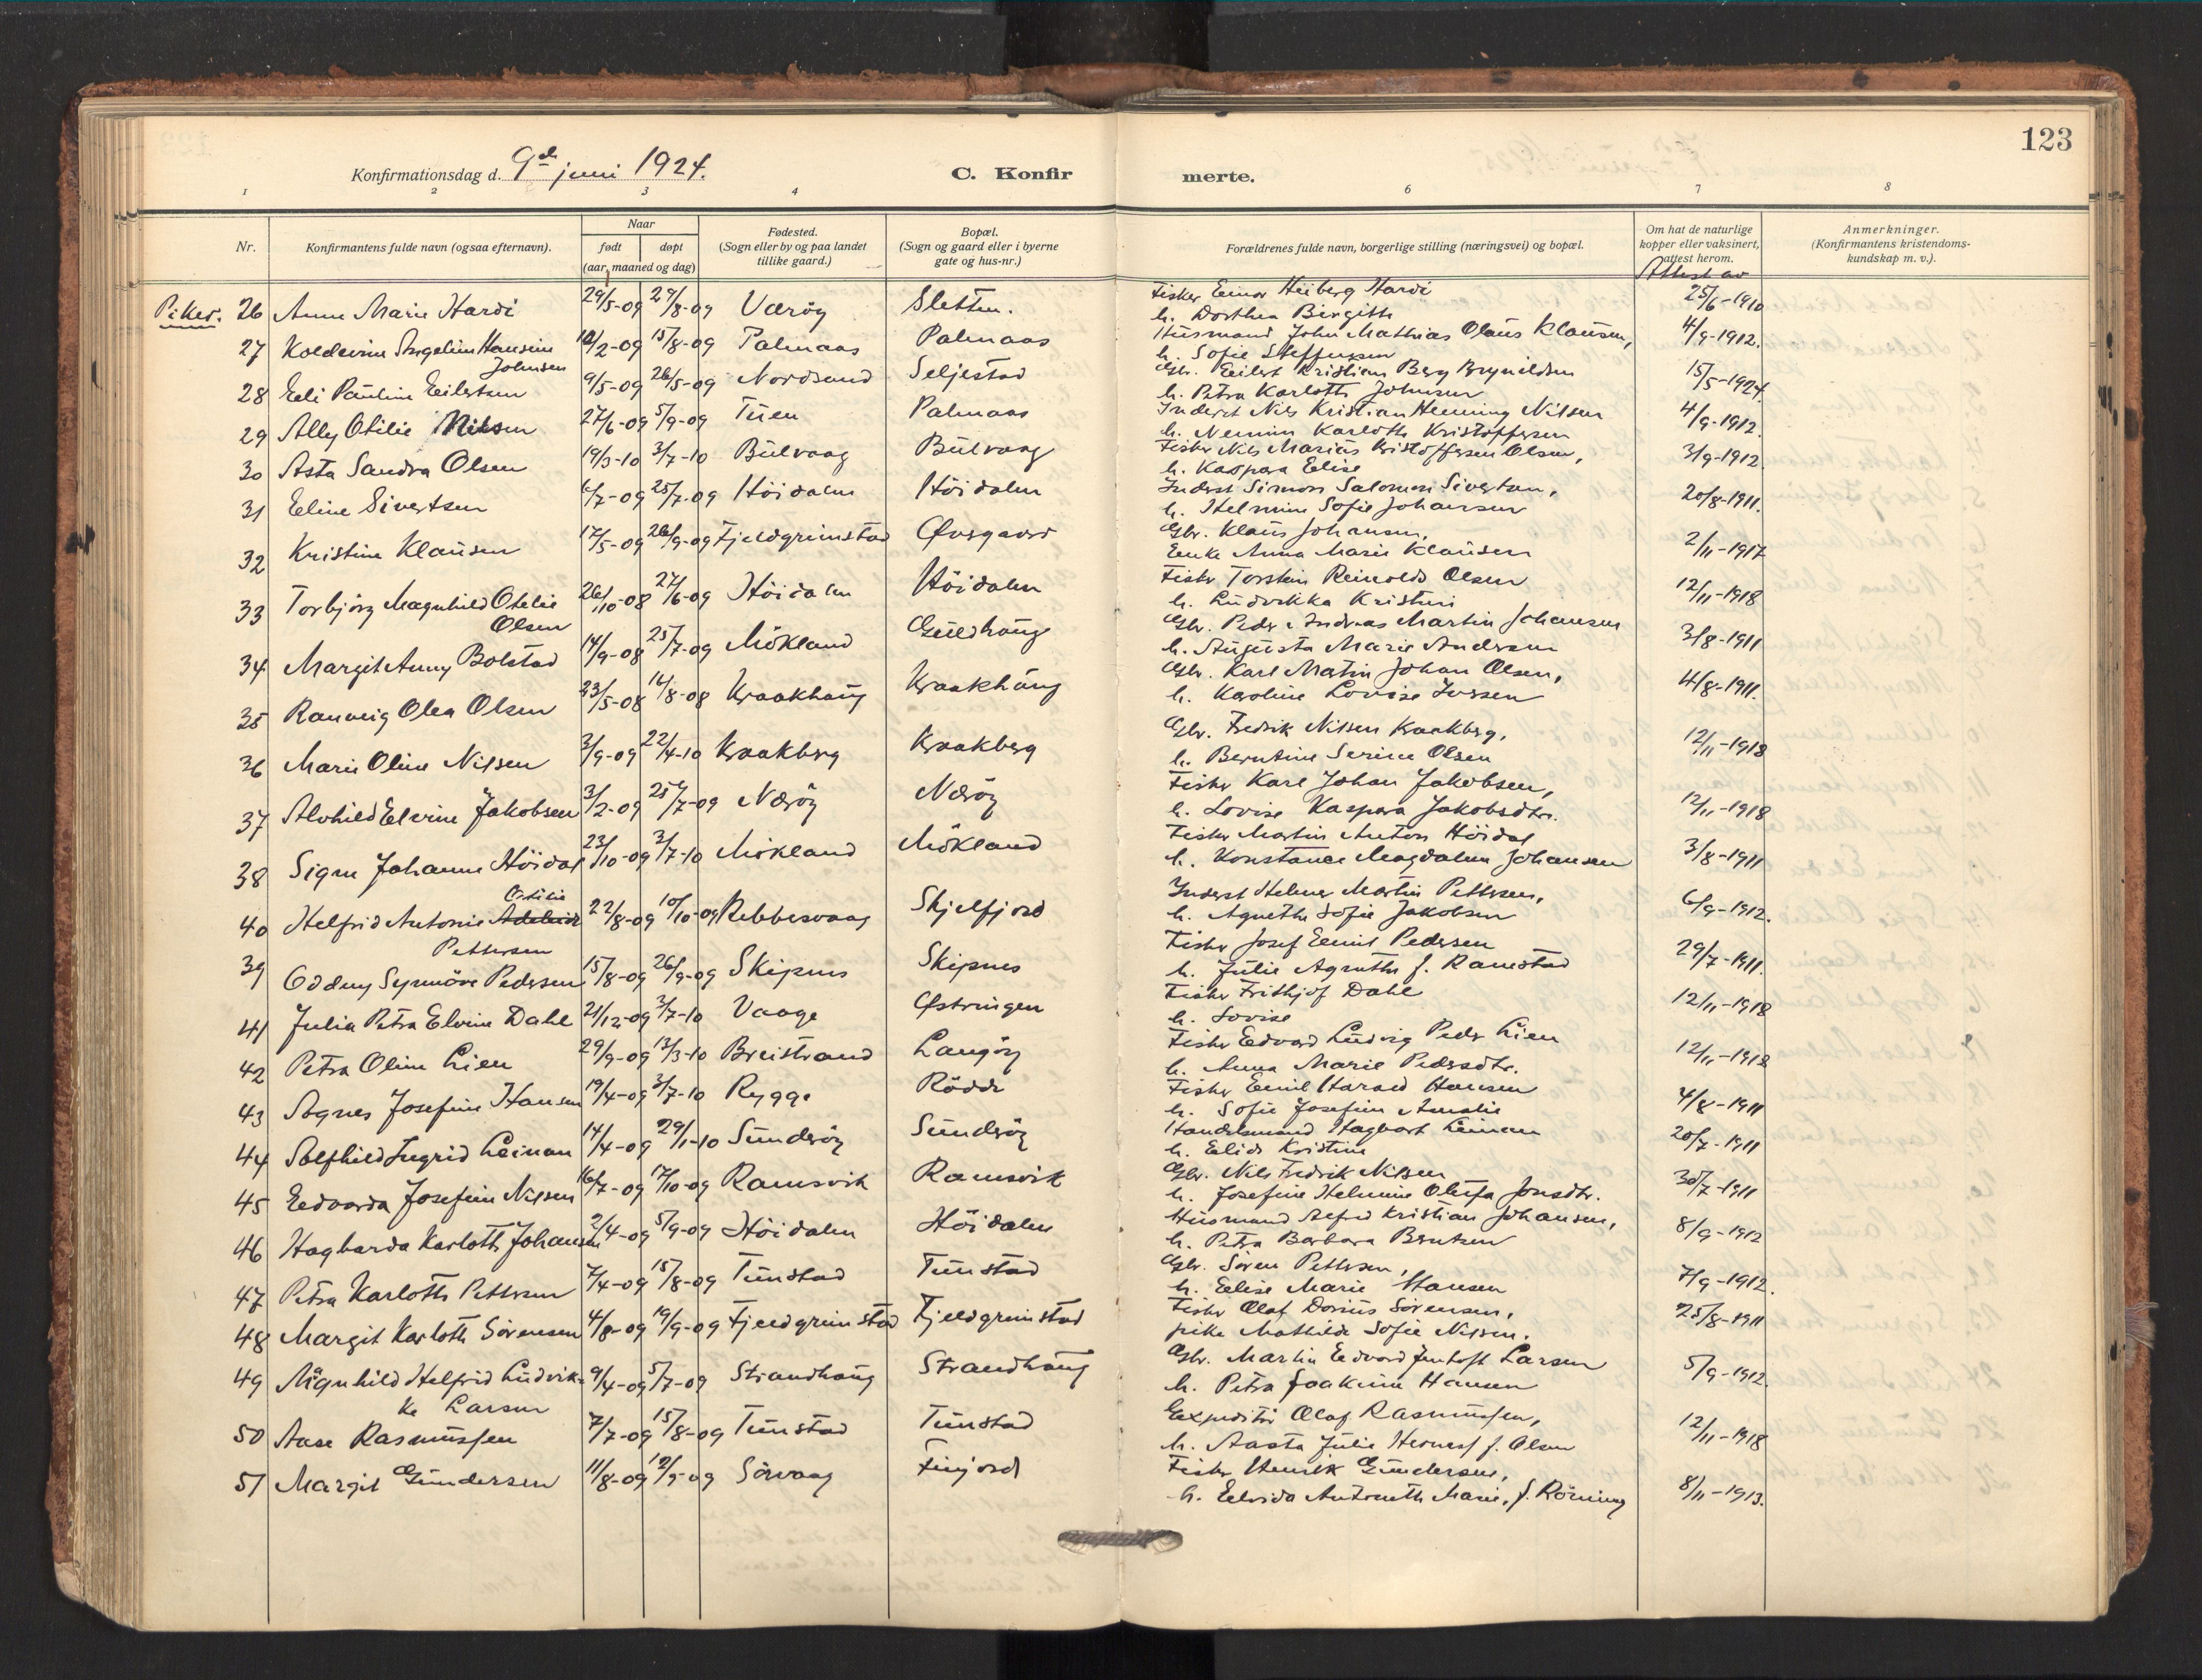 123
Konfirmationsdag d. 9de juni 1924.
C. Konfir merte.
1 2 3 4 6 7 8
Nr.
Konfirmantens fulde navn (ogsaa efternavn).
Naar
født døpt
(aar, maaned og dag)
Fødested.
(Sogn eller by og paa landet
tillike gaard.)
Bopæl.
(Sogn og gaard eller i byerne
gate og hus-nr.)
Forældrenes fulde navn, borgerlige stilling (næringsvei) og bopæl.
Om hat de naturlige
kopper eller vaksinert,
attest herom.
Attest av
Anmerkninger.
(Konfirmantens kristendoms-
kundskap m. v.).
Piker. 26 Anna Marie Hardi 29/5-09 29/8-09 Værøy Sletten. Fisker Einar Heiberg Hardi 25/6-1910
h. Dorthea Birgitte
27 Koldevine Angeline Hansine 10/2-09 15/8-09 Palmaas Palmaas Husmand John Mathias Olaus Klausen, 4/9-1912.
Johnsen h. Sofie Steffensen
28 Eli Pauline Eilertsen 9/5-09 26/5-09 Nordsand Seljestad Gbr. Eilert Kristian Berg Brynildsen 15/5-1924.
h. Petra Karlotte Johnsen
29 Ally Otilie Nilsen 27/6-09 5/9-09 Tuen Palmaas Inderst Nils Kristian Henning Nilsen 4/9-1912.
h. Karlotte Kristoffersen
30 Asta Sandra Olsen 19/3-10 3/7-10 Bulvaag Bulvaag Fisker Nils Marius Kristoffersen Olsen, 3/9-1912
h. Kaspara Elise
31 Eline Sivertsen 6/7-09 25/7-09 Höidalen Höidalen Inderst Simon Salomon Sivertsen, 20/8-1911.
h. Helmine Sofie Johansen
32 Kristine Klausen 17/5-09 26/9-09 Fjeldgrimstad Øvsgaard Gbr. Klaus Johansen, 2/11-1917
Enke Anna Marie Klausen
33 Torbjörg Magnhild Otelie 26/10-08 27/6-09 Höidalen Höidalen Fisker Torstein Reinoldo Olsen 12/11-1918
Olsen h. Ludvikka Kristine
34 Margit Anny Bolstad 14/9-08 25/7-09 Mökland Guldhaug Gbr. Peder Andreas Martin Johansen 3/8-1911
h. Augusta Marie Andersen
35 Ranveig Olea Olsen 23/5-08 16/8-08 Kraakhaug Kraakhaug Gbr. Karl Martin Johan Olsen, 4/8-1911.
h. Karoline Lovise Iversen
36 Marie Oline Nilsen 3/9-09 22/4-10 Kraakberg Kraakberg Gbr. Fredrik Nilsen Kraakberg, 12/11-1918
h. Berntine Serine Olsen
37 Alvhild Elvine Jakobsen 3/2-09 25/7-09 Næröy Næröy Fisker Karl Johan Jakobsen, 12/11-1918
h. Lovise Kaspara Jakobsdtr.
38 Signe Johanne Höidal 23/10-09 3/7-10 Mökland Mökland Fisker Martin Anton Höidal 3/8-1911
h. Konstance Magdalena Johansen
Otilie
40 Helfrid Antonie Adelheid 22/8-09 10/10-09 Kobbesvaag Skjelfjord Inderst Helmer Martin Pettersen, 6/9-1912.
Pettersen h. Agnethe Sofie Jakobsen
39 Oddny Synnöve Pedersen 15/8-09 26/9-09 Skipnes Skipnes Fisker Josef Emil Pedersen 29/7-1911.
h. Julie Agnethe f. Ramstad
41 Julia Petra Elvine Dahl 21/12-09 3/7-10 Vaage Østringen Fisker Frithjof Dahl 12/11-1918
h. Lovise
42 Petra Oline Lien 29/9-09 13/3-10 Breistrand Langöy Fisker Edvard Ludvig Peder Lien 12/11-1918
h. Anna Marie Pedersdtr.
43 Agnes Josefine Hansen 19/4-09 3/7-10 Rygge Rödde Fisker Emil Harald Hansen 4/8-1911
h. Sofie Josefine Amalie
44 Solfhild Ingrid Leinan 14/4-09 29/1-10 Sunderöy Sunderöy Handelsmand Hagbart Leinan 20/7-1911
h. Elide Kristine
45 Edvarda Josefine Nilsen 16/7-09 17/10-09 Ramsvik Ramsvik Gbr. Nils Fredrik Nilsen 30/7-1911
h. Josefine Helmine Olufa Jonsdtr.
46 Hagbarda Karlotte Johansen 2/4-09 5/9-09 Höidalen Höidalen Husmand Alfred Kristian Johansen, 8/9-1912
h. Petra Barbara Berntsen
47 Petra Karlotte Pettersen 7/4-09 15/8-09 Tunstad Tunstad Gbr. Sören Pettersen, 7/9-1912.
h. Elise Marie Hansen
48 Margit Karlotte Sörensen 4/8-09 19/9-09 Fjeldgrimstad Fjeldgrimstad Fisker Olaf Dorius Sörensen, 25/8-1911
pike Mathilde Sofie Nilsen.
49 Magnhild Helfrid Ludvik- 9/4-09 5/7-09 Strandhaug Strandhaug Gbr. Martin Edvard Jentoft Larsen 5/9-1912.
ke Larsen h. Petra Joakime Hansen
50 Aase Rasmussen 7/7-09 15/8-09 Tunstad Tunstad Expeditör Olaf Rasmussen, 12/11-1918
h. Aasta Julie Hernes f. Olsen
51 Margit Gundersen 11/8-09 12/9-09 Sörvaag Finjord Fisker Henrik Gundersen, 8/11-1913.
h. Elvida Antonette Marie, f. Röning